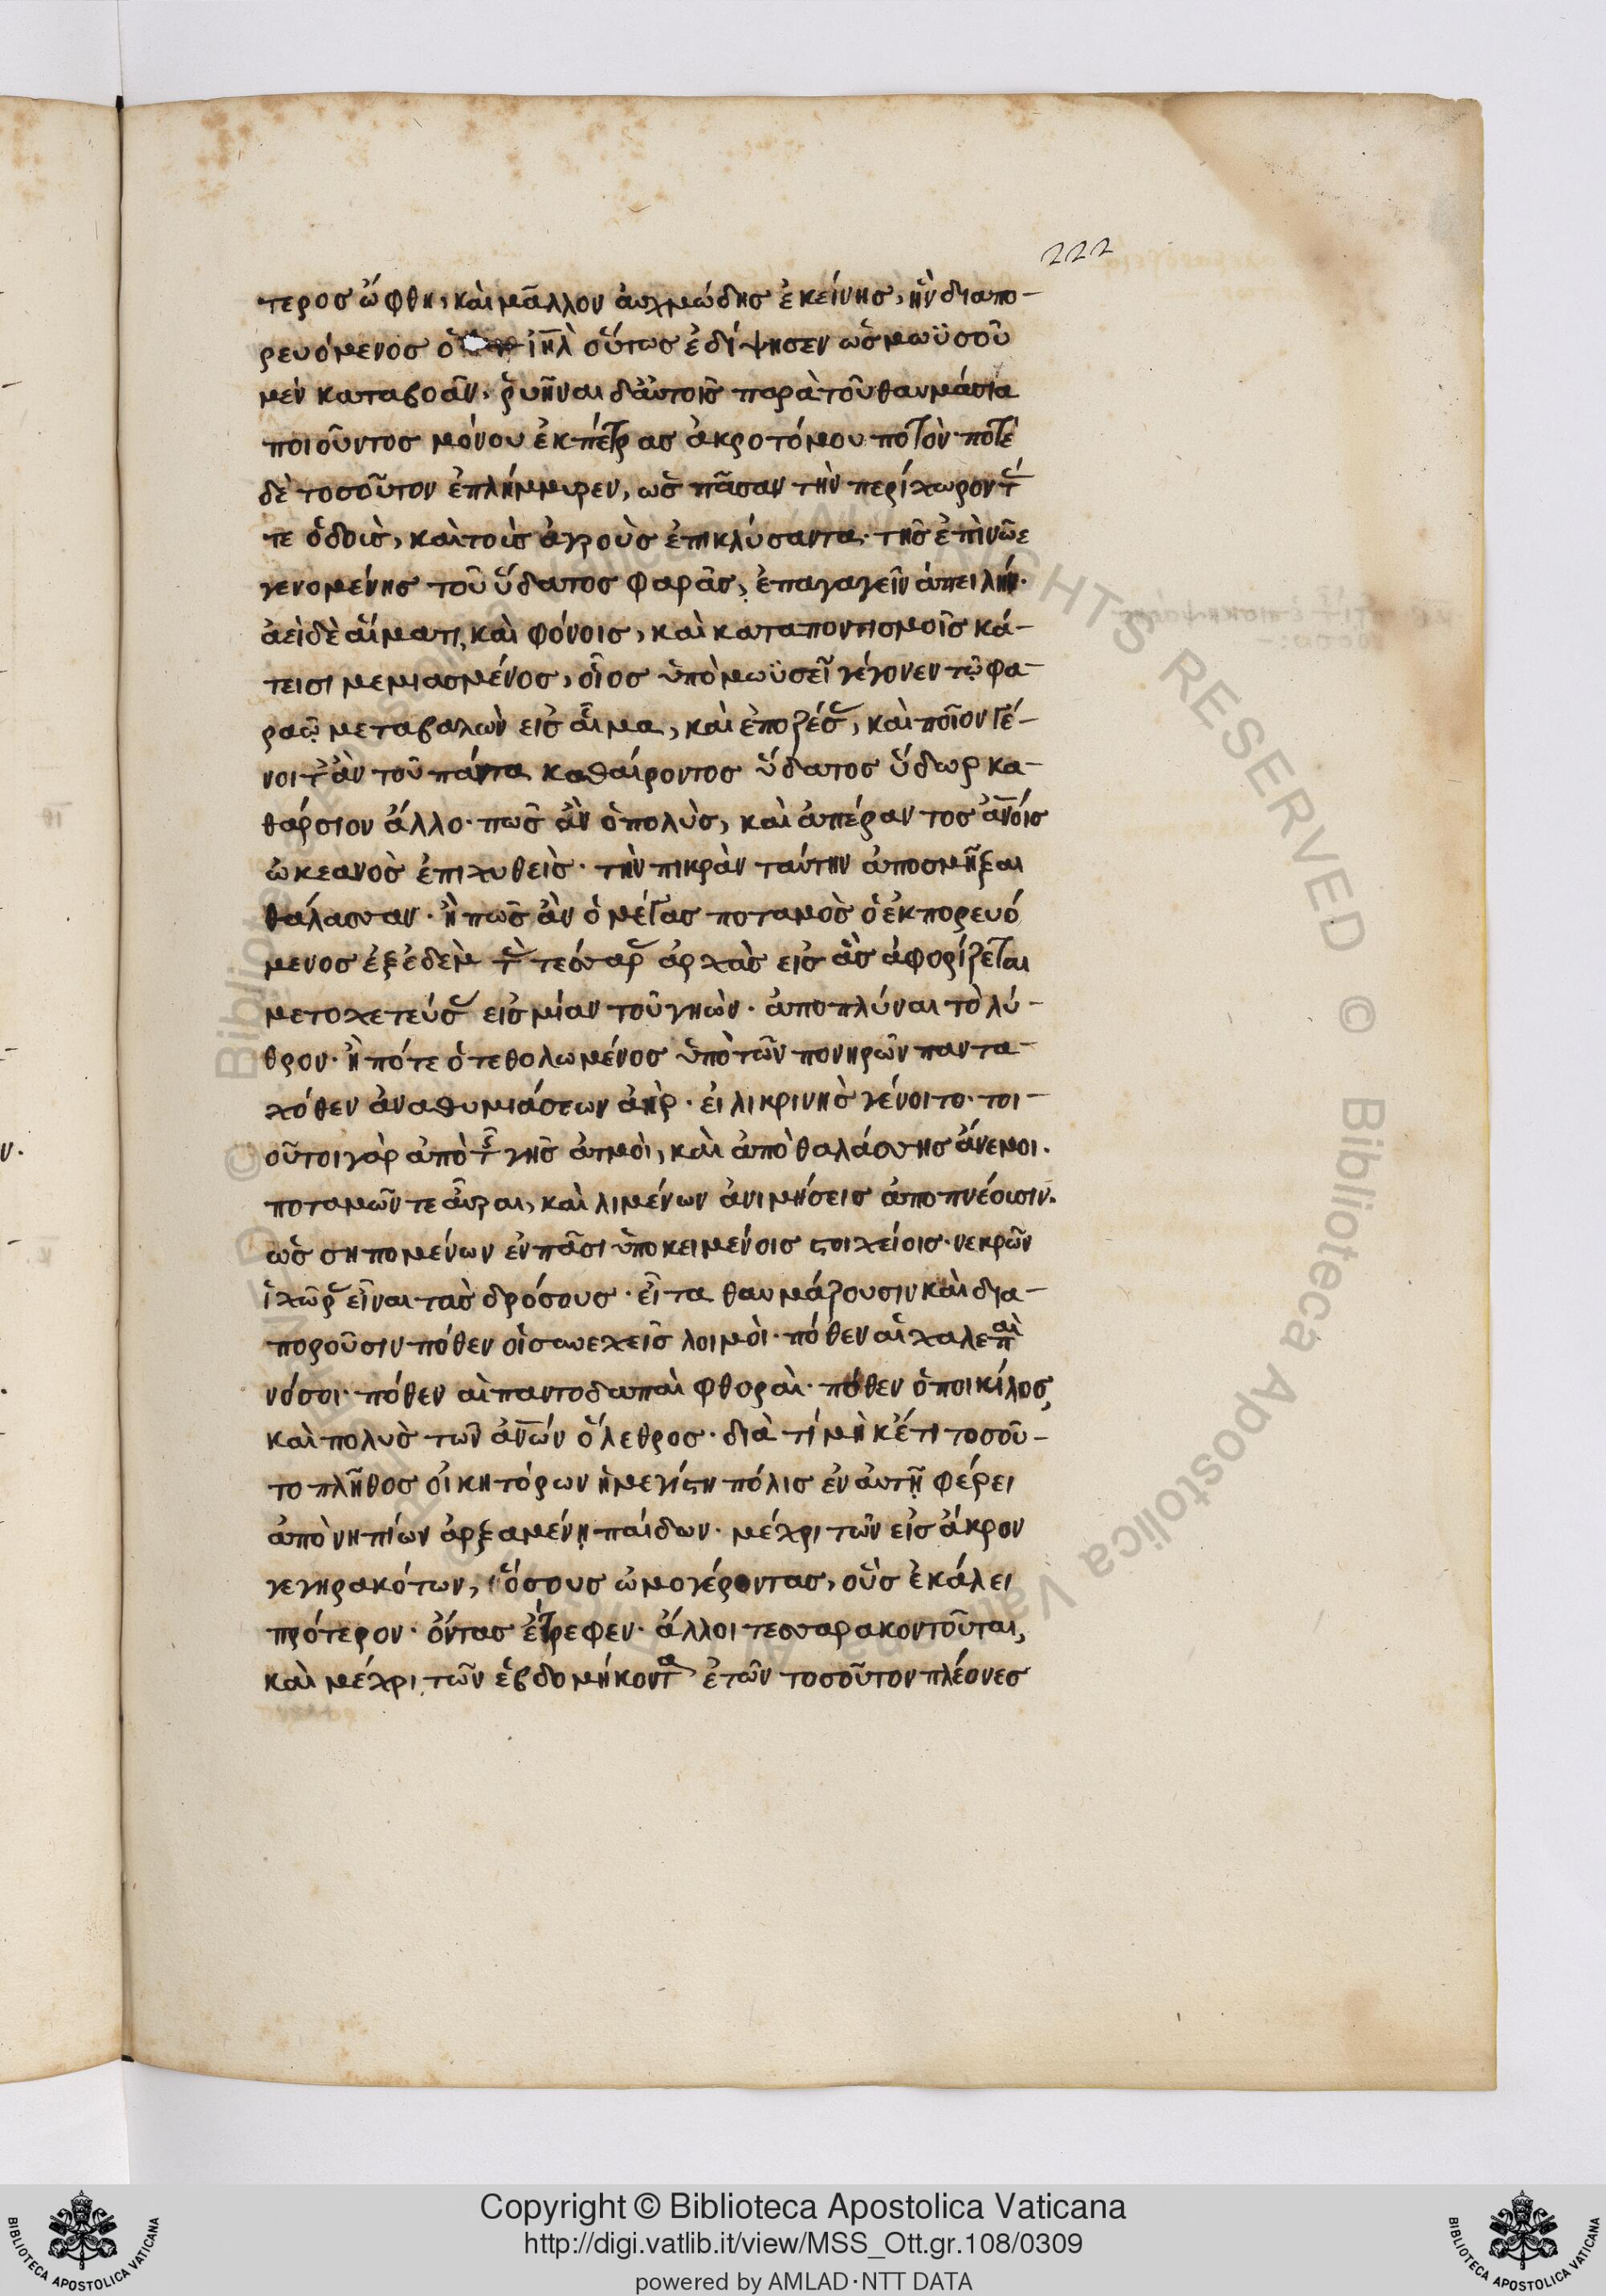 222
τερος ὤφθη, καὶ μᾶλλον αὐχμώδης ἐκείνης, ἣν διαπο-
ρευόμενος ὁ ἰη̅λ οὕτως ἐδίψησεν ὡς μωϋσοῦ
μὲν καταβοᾶν, ῥυῆναι δ' αὐτοῖς παρὰ τοῦ θαυμάσια
ποιοῦντος μόνου ἐκ πέτρας ἀκροτόμου ποτὸν· ποτὲ
δὲ τοσοῦτον ἐπλήμμυρεν, ὡς πᾶσαν τὴν περίχωρον τ
τε ὁδοὺς, καὶ τοὺς ἀγροὺς ἐπικλύσαντα· τῆς ἐπὶ νῶε
γενομένης τοῦ ὕδατος φορᾶς, ἐπαγαγεῖν ἀπειλήν·
ἀεὶ δὲ αἵματι, καὶ φόνοις, καὶ καταποντισμοῖς κά-
τεισι μεμιασμένος, οἷος ὑπὸ μωϋσεῖ γέγονεν τῷ φα-
ραῷ μεταβαλὼν εἰς αἷμα, καὶ ἐποζέσ, καὶ ποῖον γέ-
νοιτ' ἂν τοῦ πάντα καθαίροντος ὕδατος ὕδωρ κα-
θάρσιον ἄλλο· πῶς ἂν ὁ πολὺς, καὶ ἀπέραντος ἀν̅οις
ὠκεανὸς ἐπιχυθεὶς· τὴν πικρὰν ταύτην ἀποσμῆξαι
θάλασσαν· ἢ πῶς ἂν ὁ μέγας ποταμὸς ὁ ἐκπορευό
μενος ἐξ ἐδὲμ τ τέσσαρ ἀρχὰς εἰς ἃς ἀφορίζεται
μετοχετεύσ εἰς μίαν τοῦ γηὼν· ἀποπλύναι τὸ λύ-
θρον· ἢ πότε ὁ τεθολωμένος ὑπὸ τῶν πονηρῶν παντα-
χόθεν ἀναθυμιάσεων ἀὴρ· εἰλικρινὴς γένοιτο· τοι-
οῦτοι γὰρ ἀπὸ τ γῆς ἀτμοὶ, καὶ ἀπὸ θαλάσσης ἄνεμοι.
ποταμῶν τε αὖραι, καὶ λιμένων ἀνιμήσεις ἀποπνέουσιν.
ὡς σηπομένων ἐν πᾶσι ὑποκειμένοις στοιχείοις· νεκρῶν
ἰχῶρ εἶναι τὰς δρόσους· εἶτα θαυμάζουσιν καὶ δια-
ποροῦσιν πόθεν οἱ συνεχεῖς λοιμοὶ· πόθεν αἱ χαλεπαὶ
νόσοι· πόθεν αἱ παντοδαπαὶ φθοραὶ· πόθεν ὁ ποικίλος,
καὶ πολὺς τῶν ἀν̅ων ὄλεθρος· διὰ τί μηκέτι τοσοῦ-
το πλῆθος οἰκητόρων ἡ μεγίστη πόλις ἐν αὐτῇ φέρει
ἀπὸ νηπίων ἀρξαμένη παίδων· μέχρι τῶν εἰς ἄκρον
γεγηρακότων, ὅσους ὠμογέροντας, οὓς ἐκάλει
πρότερον· ὄντας ἔτρεφεν· ἄλλοι τεσσαρακοντοῦται,
καὶ μέχρι τῶν ἑβδομήκοντα ἐτῶν τοσοῦτον πλέονες
Copyright © Biblioteca Apostolica Vaticana
http://digi.vatlib.it/view/MSS_Ott.gr.108/0309
powered by AMLAD·NTT DATA
BIBLIOTECA APOSTOLICA VATICANA
BIBLIOTECA APOSTOLICA VATICANA